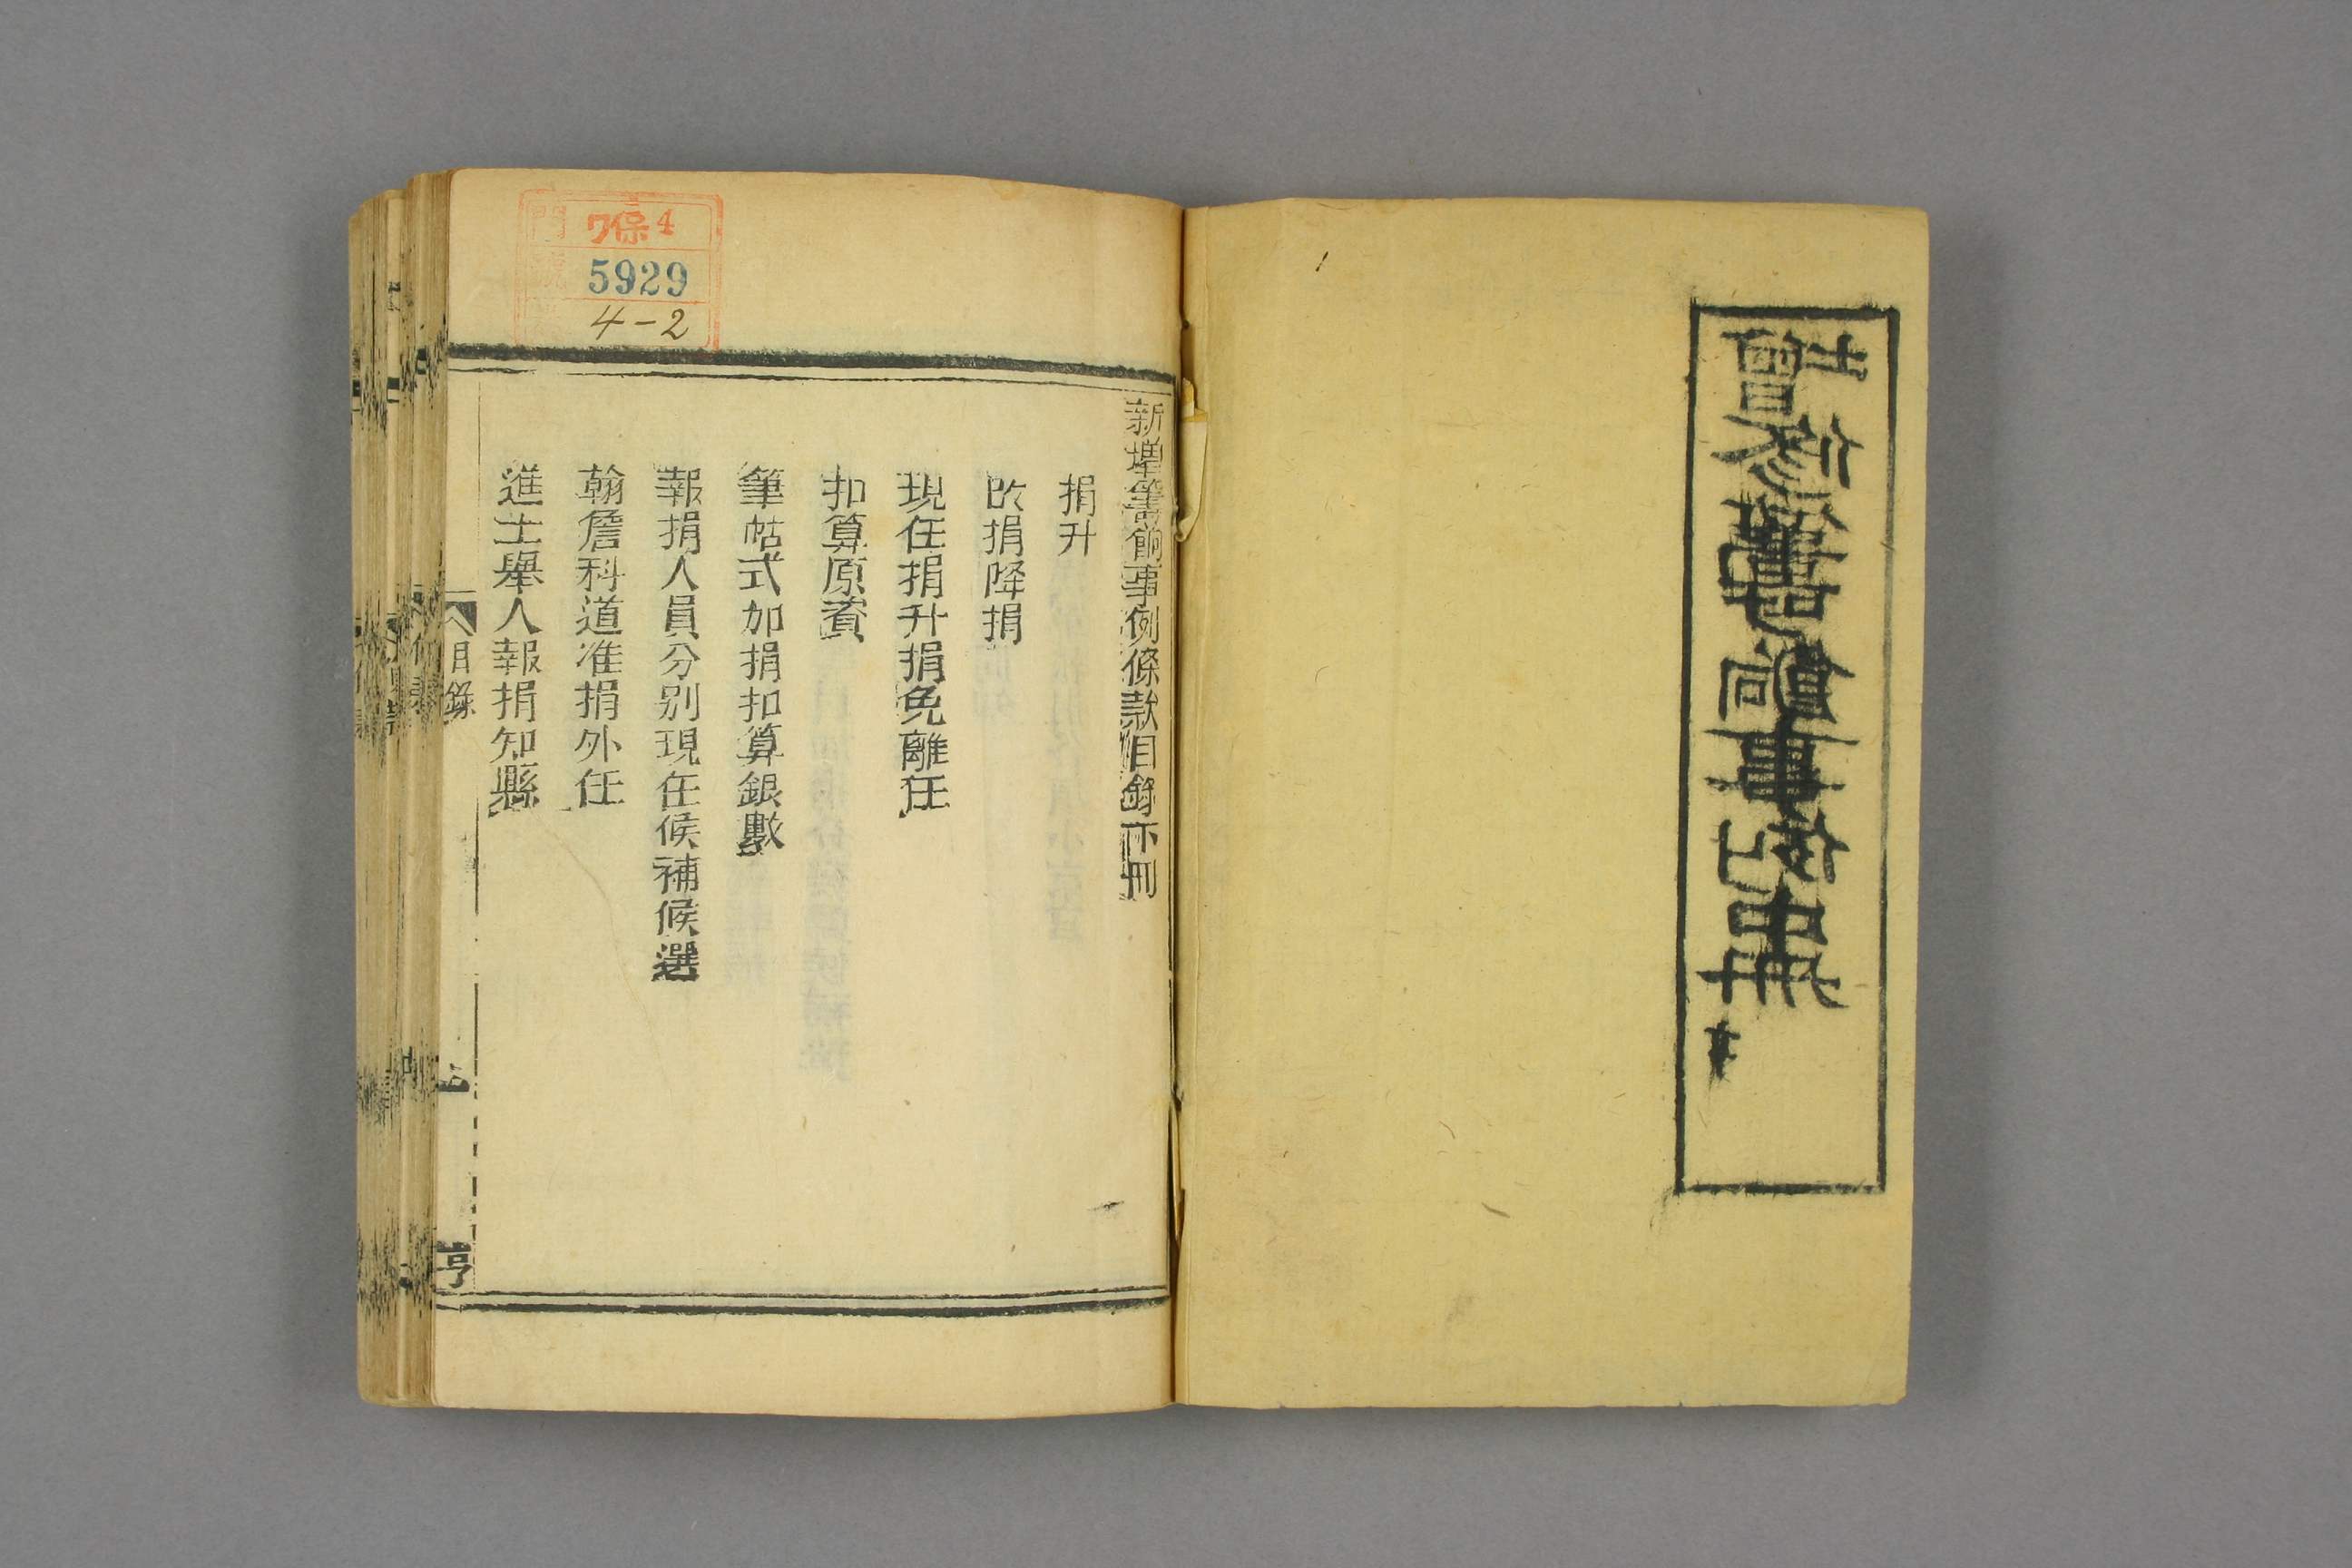 新增籌餉事例條款目錄下冊
捐升
改捐降捐
現任捐升捐免離任
扣算原資
筆帖式加捐扣算銀數
報捐人員分別現任候補候選
翰詹科道准捐外任
進士舉人報捐知縣
目錄
亨
門 ワ保4
號 5929
4-2
增修籌餉事例